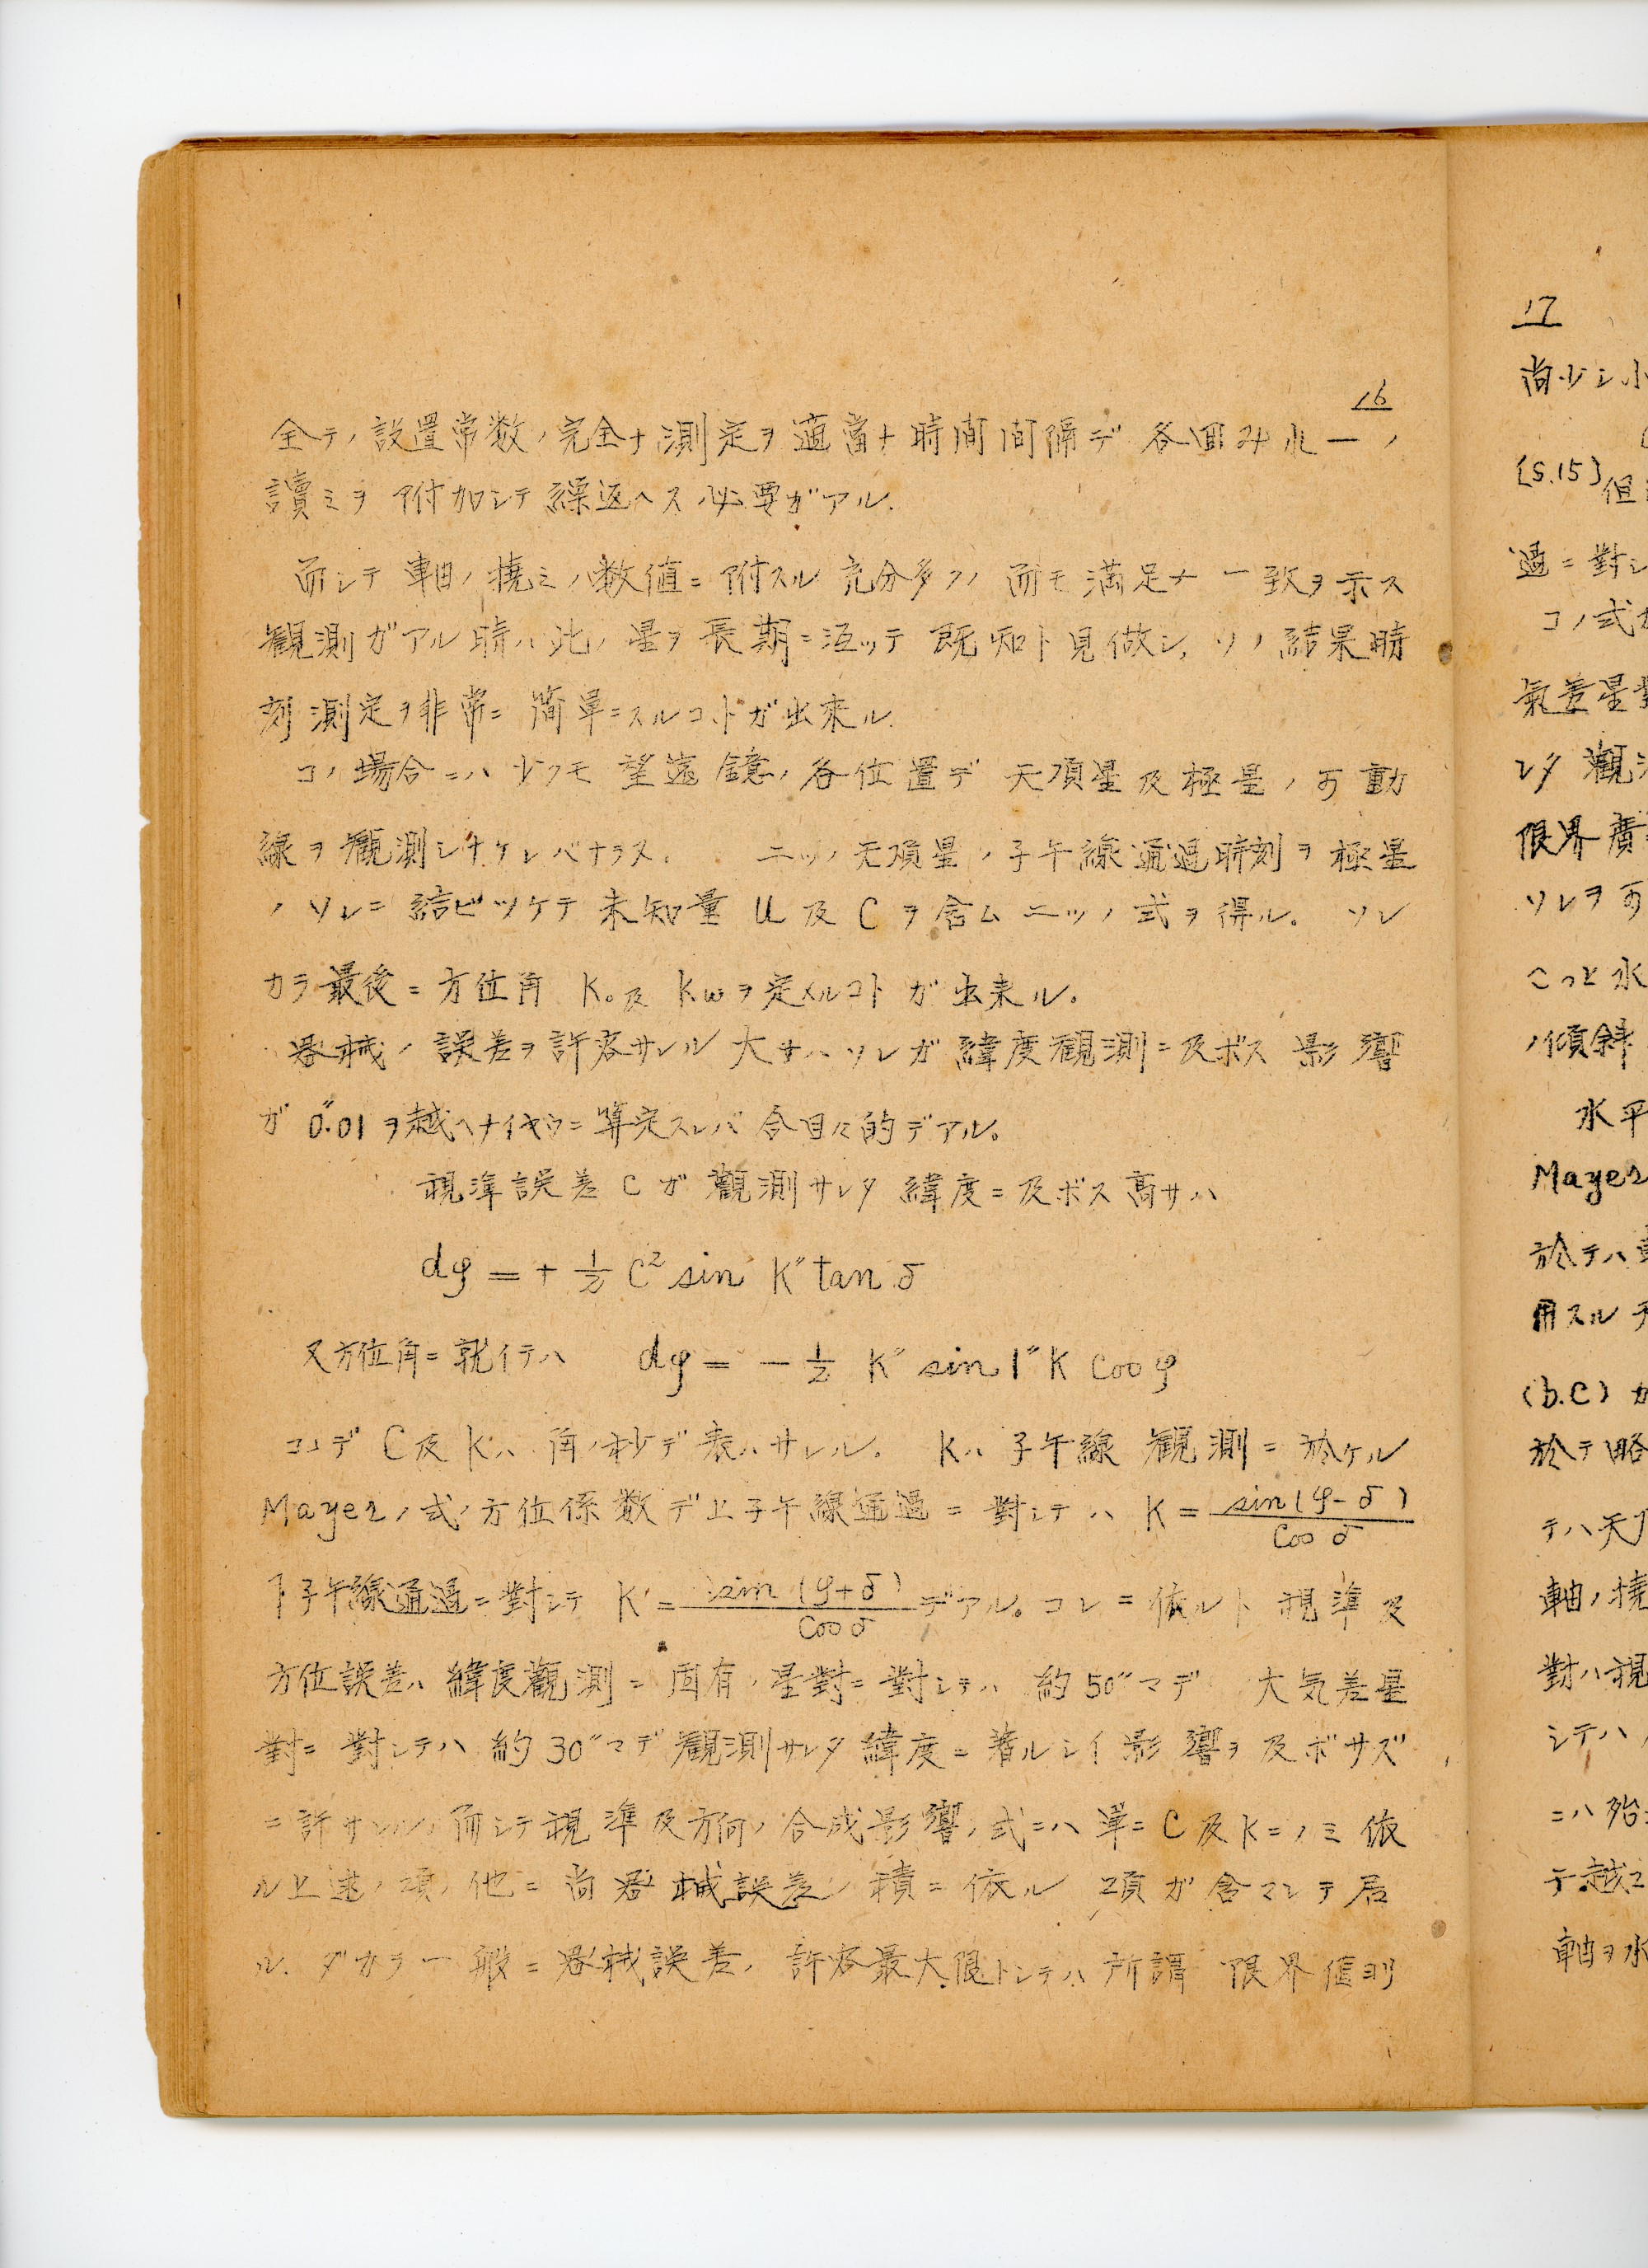 16
全テノ設置常数ノ完全ナ測定ヲ適當ナ時間間隔デ 各回
讀ミヲ 附加シテ 繰返ヘス必要ガアル.
而シテ 軸ノ撓ミノ数値ニ附スル 充分多クノ 而モ満足ナ 一致ヲ示ス
観測ガアル時ハ此ノ量ヲ長期ニ亙ッテ 既知ト見做シ, ソノ結果時
刻測定ヲ非常ニ 簡單ニスルコトガ出来ル.
コノ場合ニハ 少クモ 望遠鏡ノ各位置デ 天頂星及極星ノ可動
線ヲ観測シナケレバナラヌ. 二ツノ天頂星ノ子午線通過時刻ヲ極星
ノソレニ結ビツケテ 未知量 u 及 C ヲ含ム二ツノ式ヲ得ル。 ソレ
カラ最後ニ方位角 K₀及 Kwヲ定メルコトガ出来ル。
器械ノ誤差ヲ許容サレル大サハソレガ緯度観測ニ及ボス影響
ガ 0.″01ヲ越ヘナイヤウニ算定スレバ合目々的デアル。
視準誤差 C ガ観測サレタ緯度ニ及ボス高サハ
dφ = + 1/2 C² sin K″ tan δ
又方位角ニ就イテハ dφ = − 1/2 K″ sin 1″ K cos φ
コゝデ C及Kハ角ノ秒デ表ハサレル。 Kハ子午線観測ニ於ケル
Mayerノ式ノ方位係数デ上子午線通過ニ對シテハ K = sin(φ−δ)/cos δ
下子午線通過ニ對シテ K′ = sin(φ+δ)/cos δ デアル。コレニ依ルト視準及
方位誤差ハ緯度觀測ニ固有ノ星對ニ對シテハ 約50″マデ 大気差星
對ニ對シテハ 約30″マデ観測サレタ緯度ニ著ルシイ影響ヲ及ボサズ
ニ許サレル, 而シテ視準及方向ノ合成影響ノ式ニハ單ニC及Kニノミ依
ル上述ノ項ノ他ニ尚器械誤差ノ積ニ依ル 項ガ含マレテ居
ル. ダカラ一般ニ器械誤差ノ許容最大限トシテハ所謂 限界値則
17
尚少シ小
[S.15] 但
過ニ對シ
コノ式カ
氣差星對
レタ觀測
限界
ソレヲ可
こつと水
ノ傾斜
水平
Mayer
於テハ
用スル
(b.C) カ
於テ略
テハ天
軸ノ撓
對ハ視
シテハ
ニハ殆
テ越エ
軸ヲ水